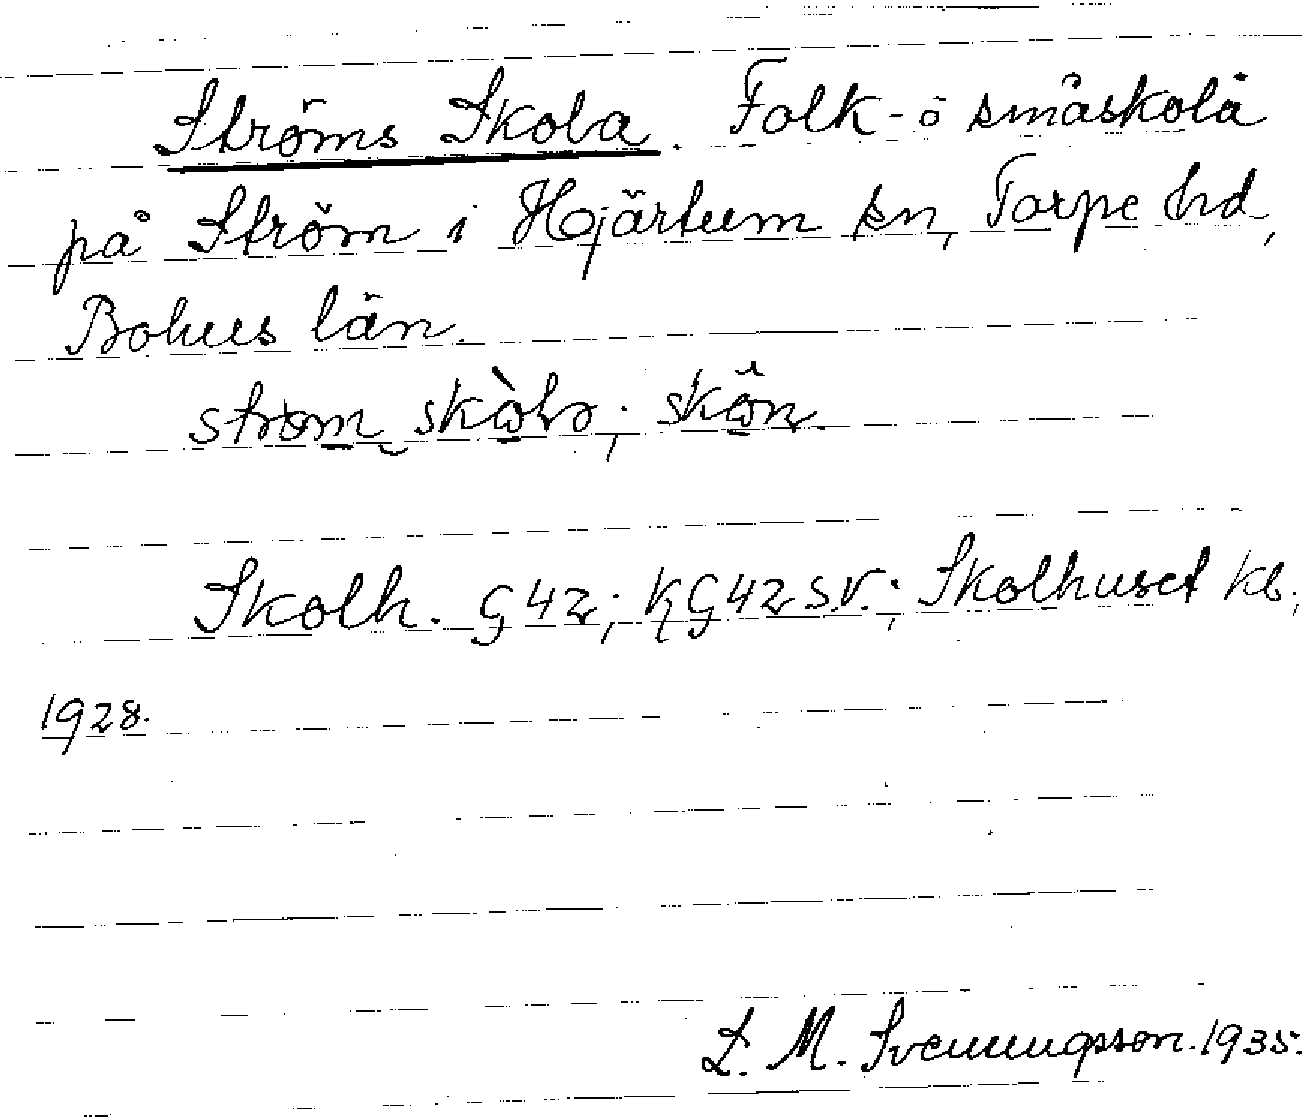 Ströms Skola. Folk- o småskola
på Ström i Hjärtum sn, Torpe hd,
Bohus län.
Skolh. G 42; KG 42 S.V.; Skolhuset kb.,
1928.
S. M. Svenungsson. 1935.